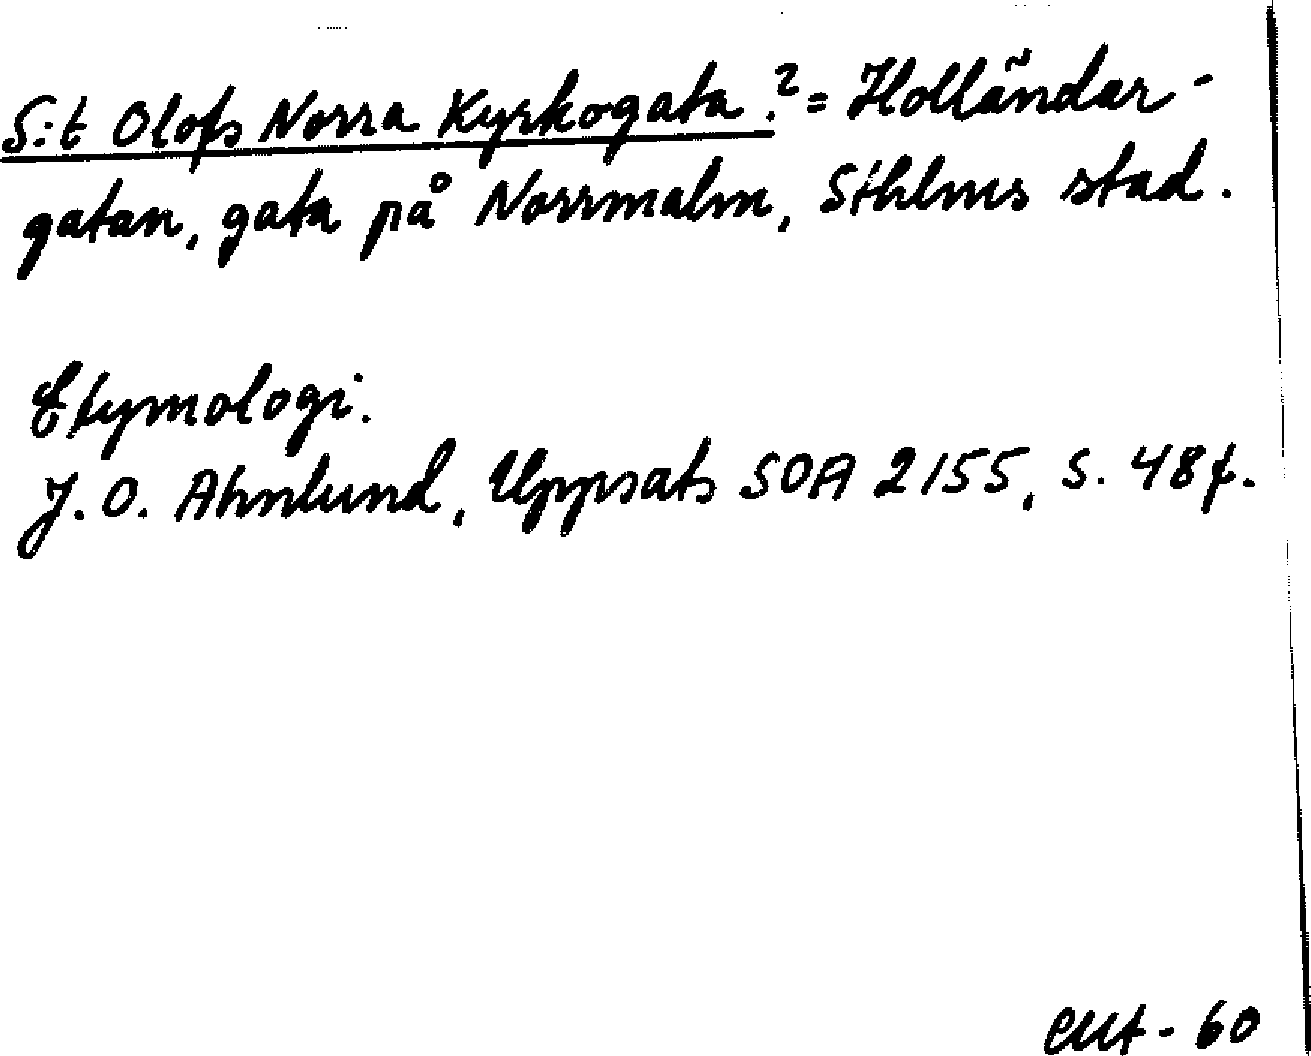 S:t Olofs Norra Kyrkogata.? = Holländar-
gatan, gata på Norrmalm, Sthlms stad.
Etymologi.
J. O. Ahnlund, Uppsats SOA 2155, s. 48 f.
- 60